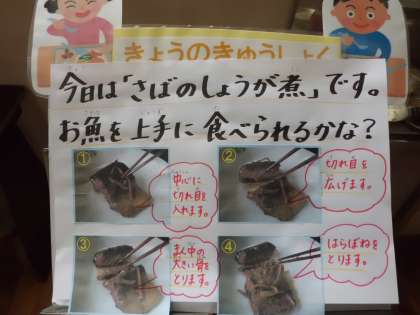 きょうのきゅうしょく
今日は「さばのしょうが煮」です。
お魚を上手に食べられるかな?
①
中心に
切れ目を
入れます。
②
切れ目を
広げます。
③
まん中の
大きい骨を
とります。
④
はらぼねを
とります。